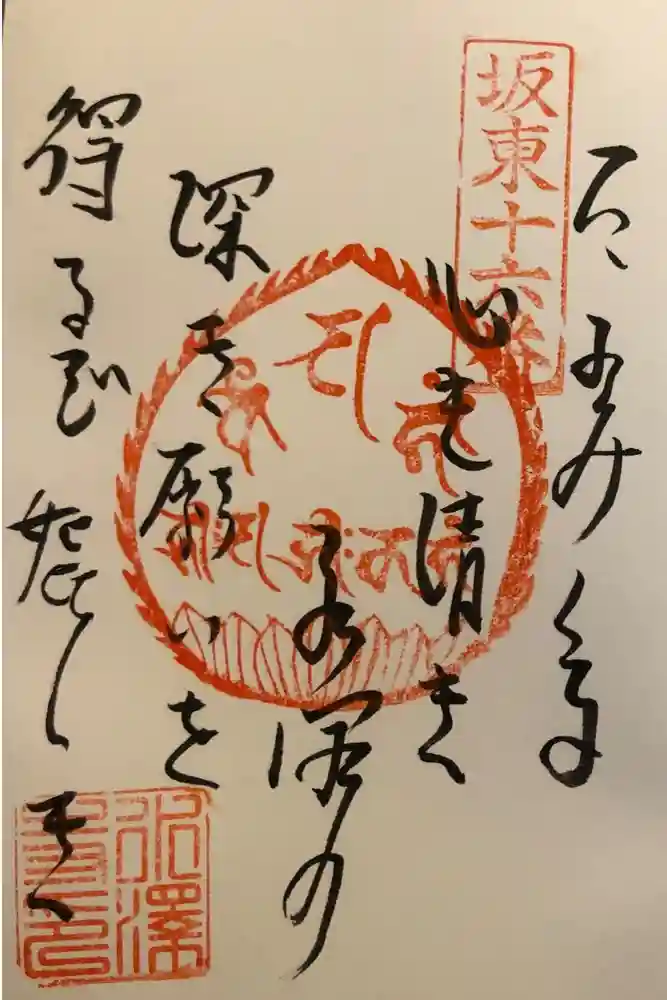 坂東十六番
たのみくる
心も清き
水澤の
深き願いを
得るぞ嬉しき
水澤